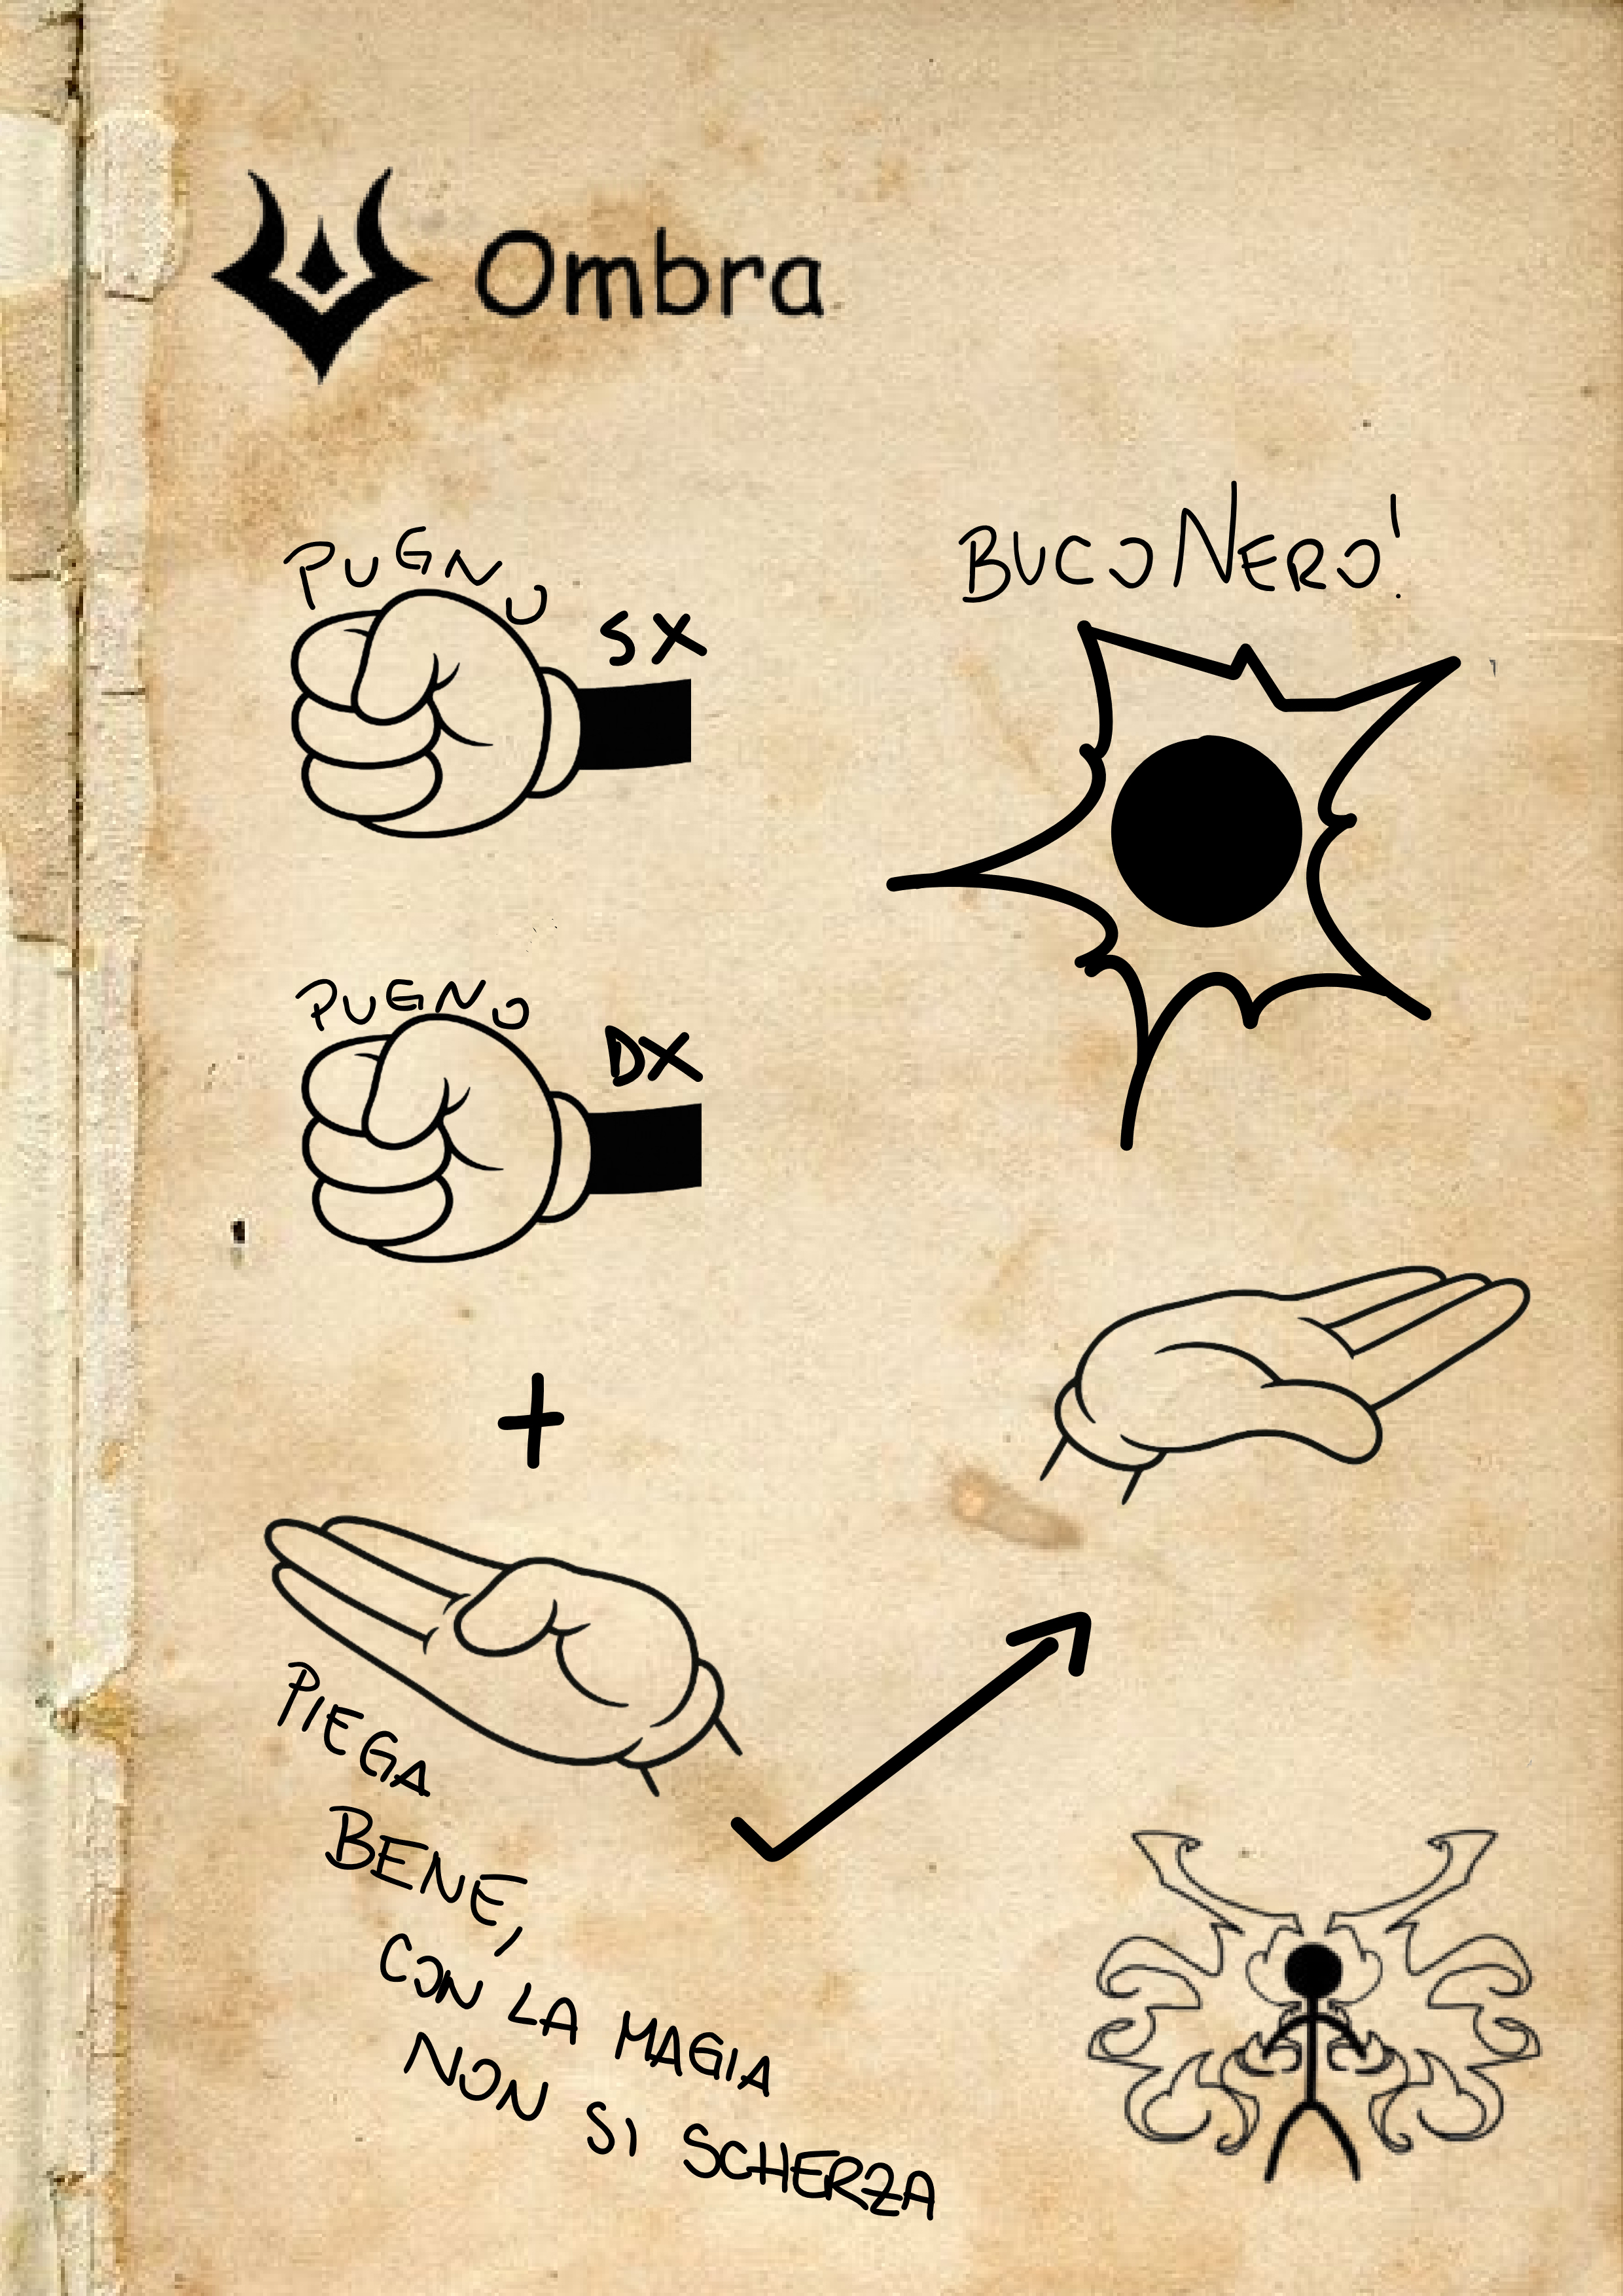 Ombra
PUGNO
SX
BUCO NERO!
PUGNO
DX
+
PIEGA
BENE,
CON LA MAGIA
NON SI SCHERZA